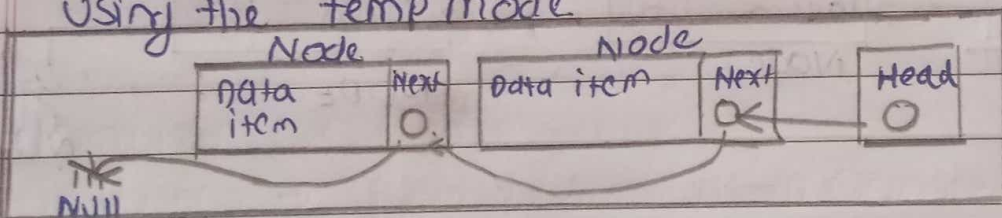 Using the temp mode
Node Node
Data item Next Data item Next Head
Null